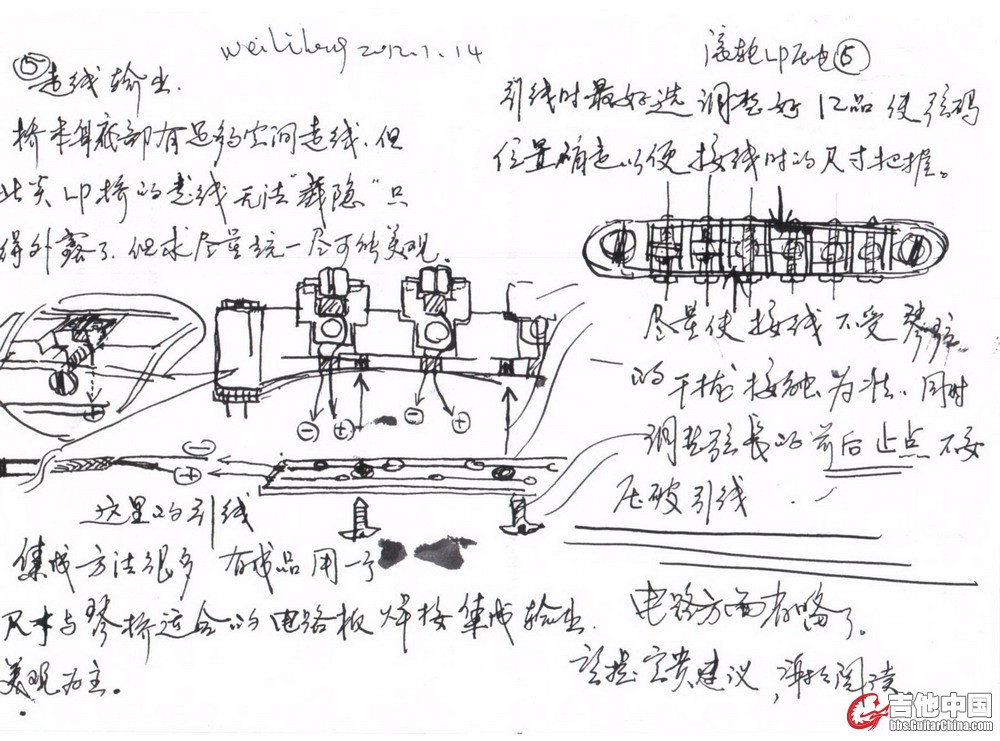 weiliheng 2012.1.14
⑤
走线输出.
桥本身底部有足够空间走线.但
此类LP桥的走线无法"载隐"只
得外露了.但求尽量统一尽可能美观.
⊖ ⊕ ⊖ ⊕
⊖
⊕
这里的引线
集成方法很多 有成品用一个
尺寸与琴桥适合的电路板焊接集成输出.
美观为主.
滚轮LP压电⑤
引线时最好先调整好12品使弦码
位置确定以便接线时的尺寸把握。
尽量使接线不受琴弦
的干扰接触为准.同时
调整弦长的前后止点不要
压破引线.
电路方面省略了.
请提宝贵建议,谢谢阅读.
吉他中国
bbs.GuitarChina.com